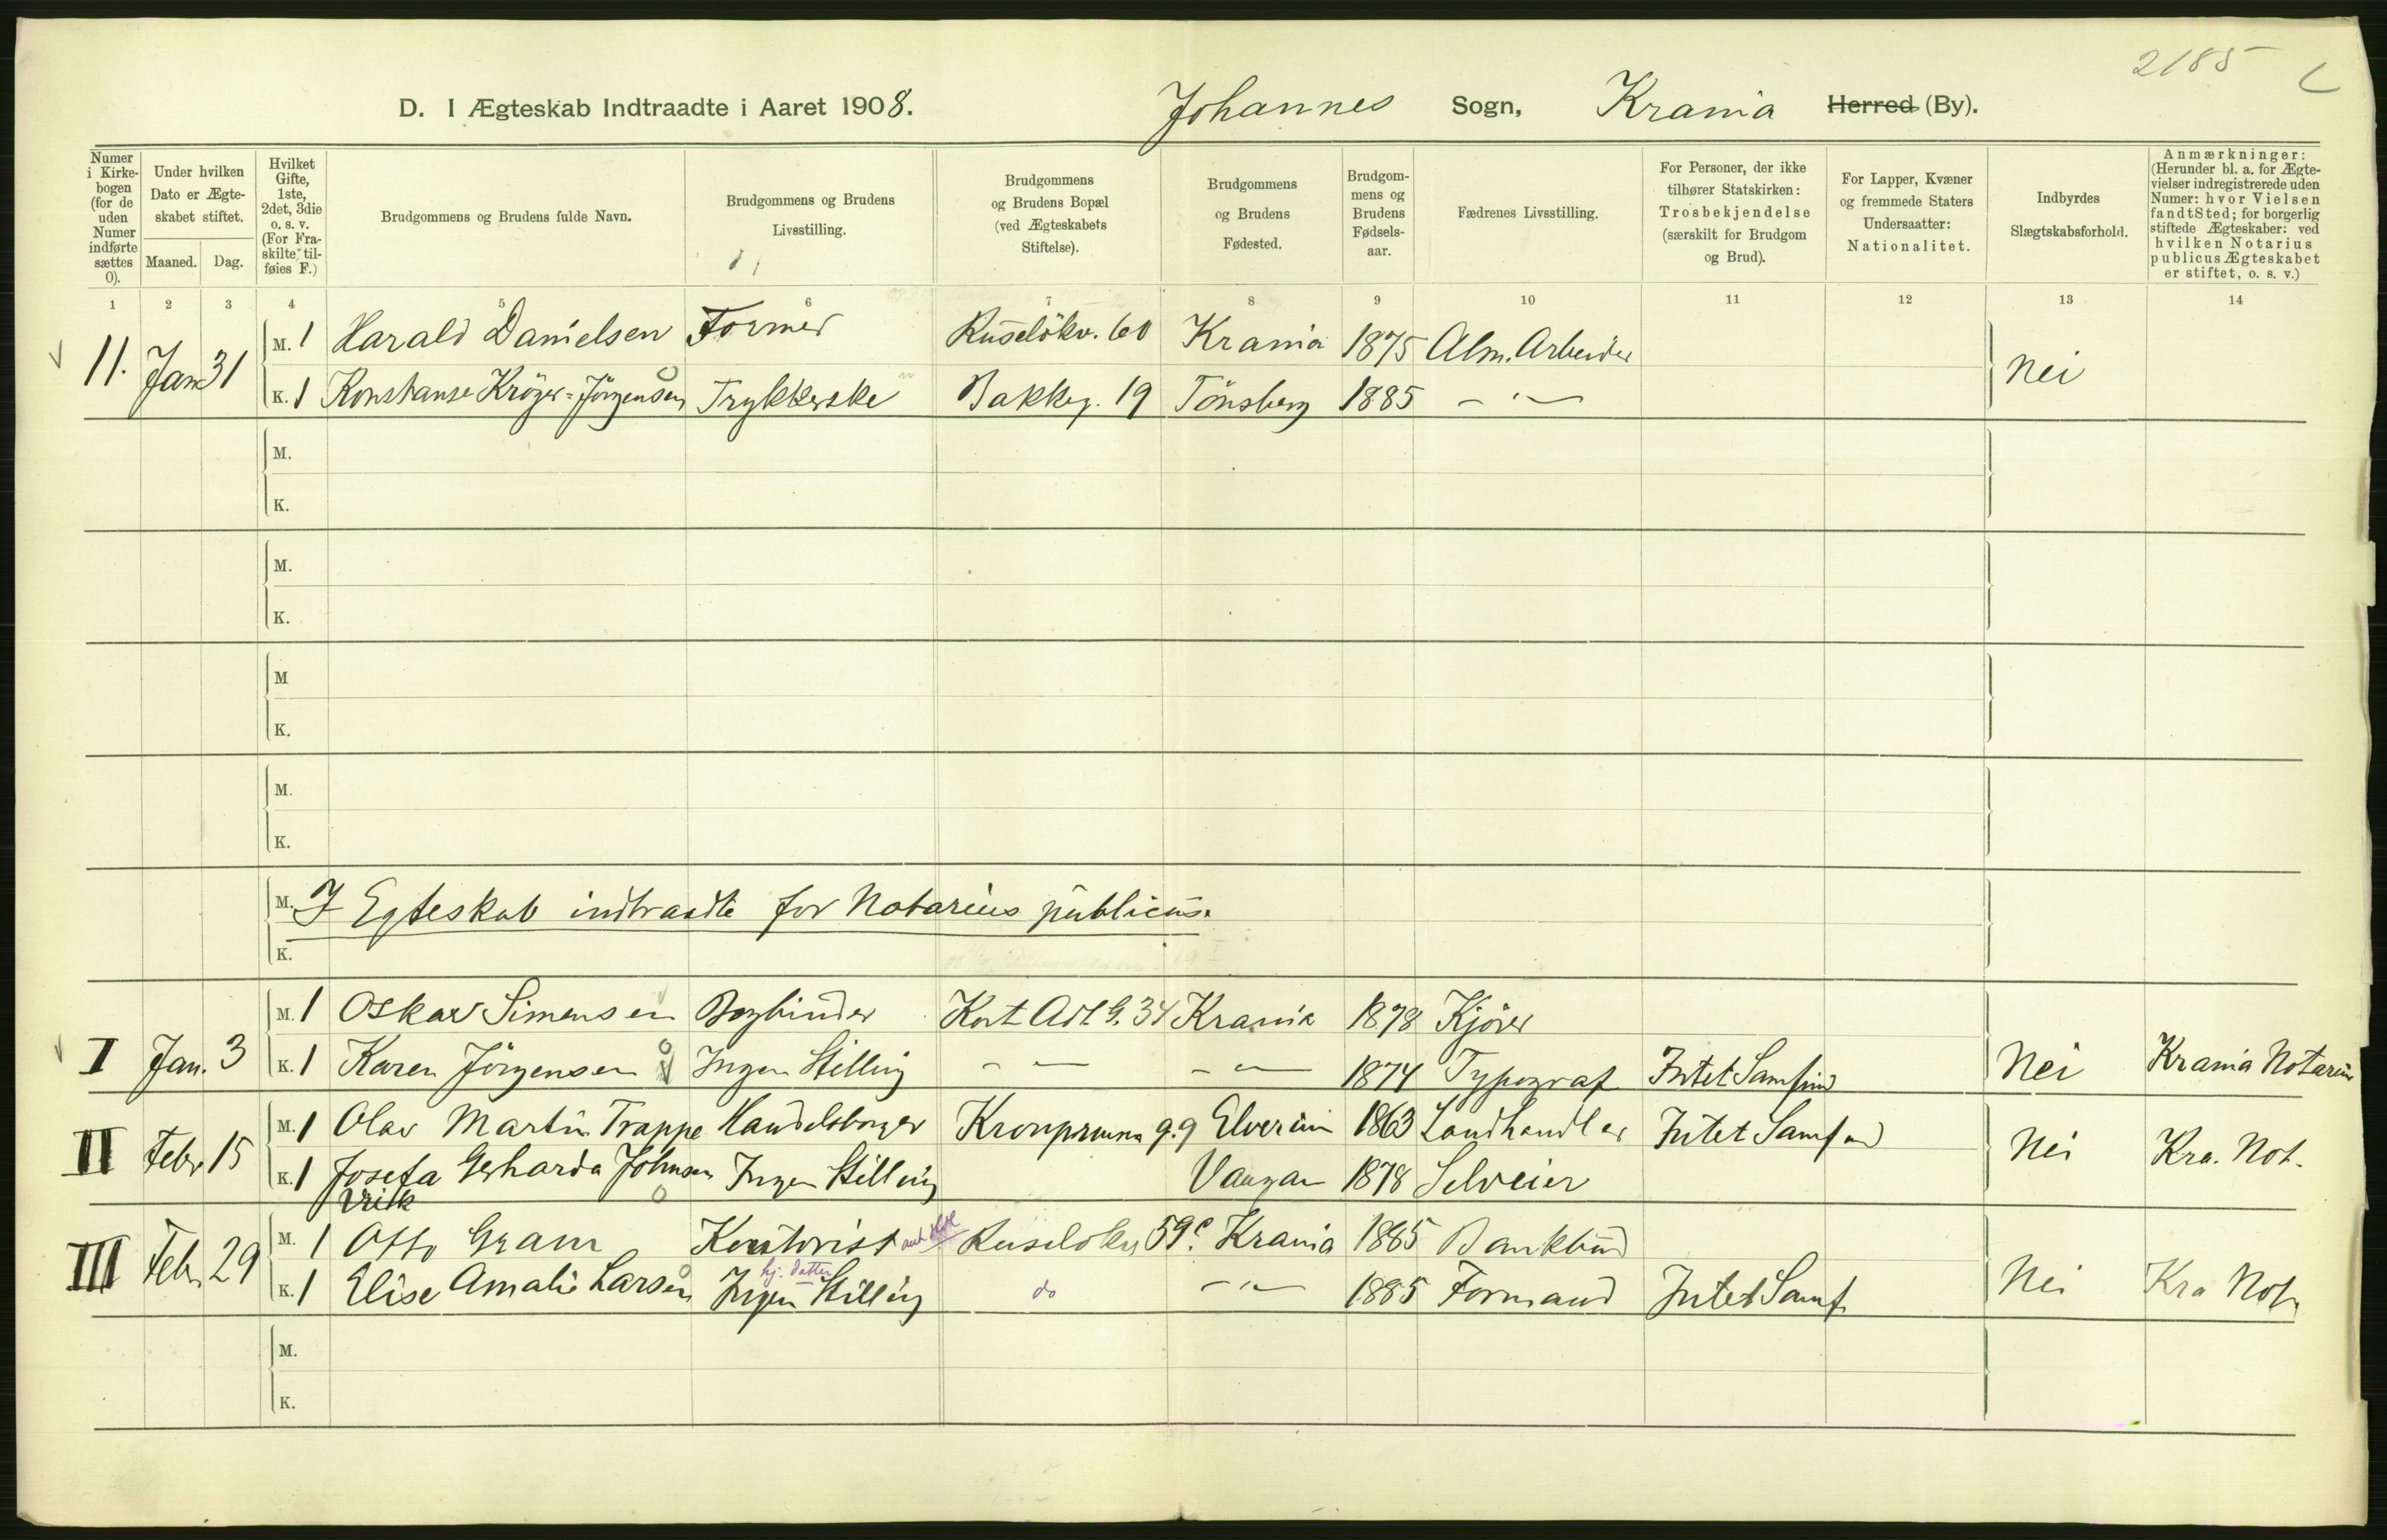 2185
D. I Ægteskab Indtraadte i Aaret 1908. Johannes Sogn, Krania Herred (By).
Numer i Kirkebogen (for de uden Numer indførte sættes 0).
Under hvilken Dato er Ægteskabet stiftet.
Maaned. Dag.
Hvilket Gifte, 1ste, 2det, 3die o. s. v. (For Fraskilte tilføies F.)
Brudgommens og Brudens fulde Navn.
Brudgommens og Brudens Livsstilling.
Brudgommens og Brudens Bopæl (ved Ægteskabets Stiftelse).
Brudgommens og Brudens Fødested.
Brudgommens og Brudens Fødselsaar.
Fædrenes Livsstilling.
For Personer, der ikke tilhører Statskirken: Trosbekjendelse (særskilt for Brudgom og Brud).
For Lapper, Kvæner og fremmede Staters Undersaatter: Nationalitet.
Indbyrdes Slægtskabsforhold.
Anmærkninger: (Herunder bl. a. for Ægtevielser indregistrerede uden Numer: hvor Vielsen fandt Sted; for borgerlig stiftede Ægteskaber: ved hvilken Notarius publicus Ægteskabet er stiftet, o. s. v.)
1 2 3 4 5 6 7 8 9 10 11 12 13 14
M. 1 Harald Danielsen Former Ruselökv. 60 Krania 1875 Alm. Arbeider
11. Jan 31 Nei
K. 1 Konstanse Kröger=Jörgensen Trykkerske Bakkeg. 19 Tönsberg 1885 - " -
M.
K.
M.
K.
M
K.
M.
K.
M. I Egteskab indtraadte for Notarius publicus.
K.
M. 1 Oskar Simensen Bogbinder Kort Adl G. 34 Krania 1878 Kjörer
I Jan. 3 Nei Krania Notarius
K. 1 Karen Jörgensen Ingen Stilling - " - - " - 1874 Typograf Intet Samfund
M. 1 Olav Martin Trappe Handelsborger Kronprinsn g. 9 Elverum 1863 Landhandler Intet Samfund
II Febr 15 Nei Kra. Not.
K. 1 Josefa Gerharda Johnsen Ingen Stilling Vangan 1878 Selveier
Vrik
M. 1 Otto Gram Kontorist Ruselökv 59c. Krania 1885 Bankbud
III Feb. 29 Nei Kra Not.
hj. datter
K. 1 Elise Amalie Larsen Ingen Stilling do - " - 1885 Formand Intet Samf.
M.
K.